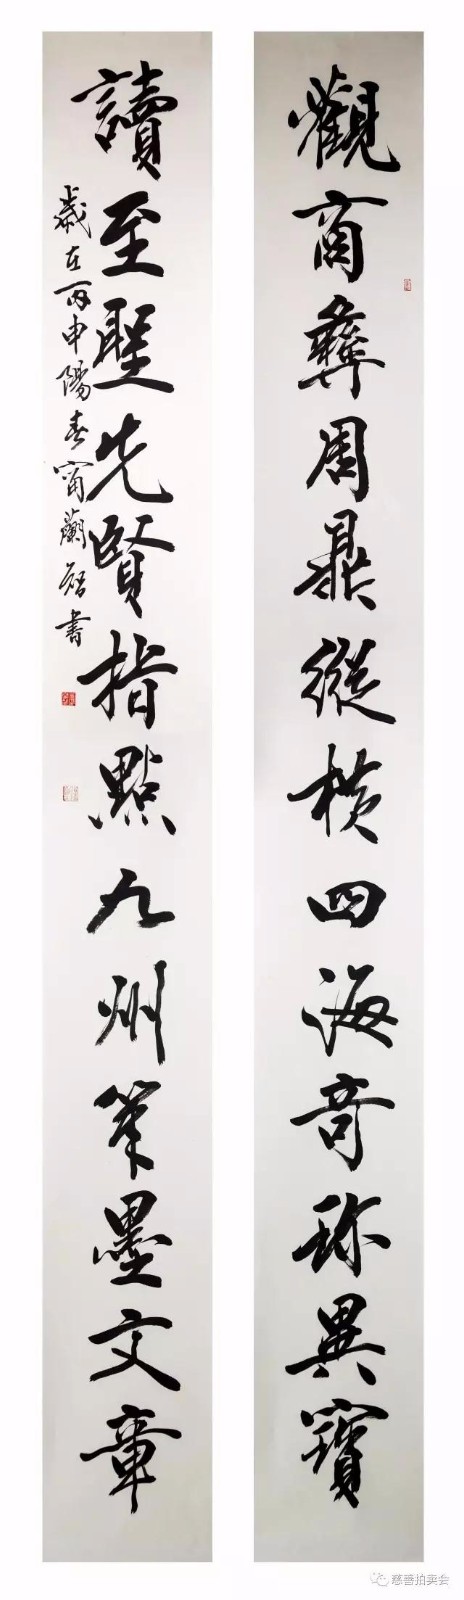 觀商彝周鼎縱橫四海奇珍異寶
讀至聖先賢指點九州筆墨文章
歲在丙申陽春甯蘭智書
慈善拍卖会